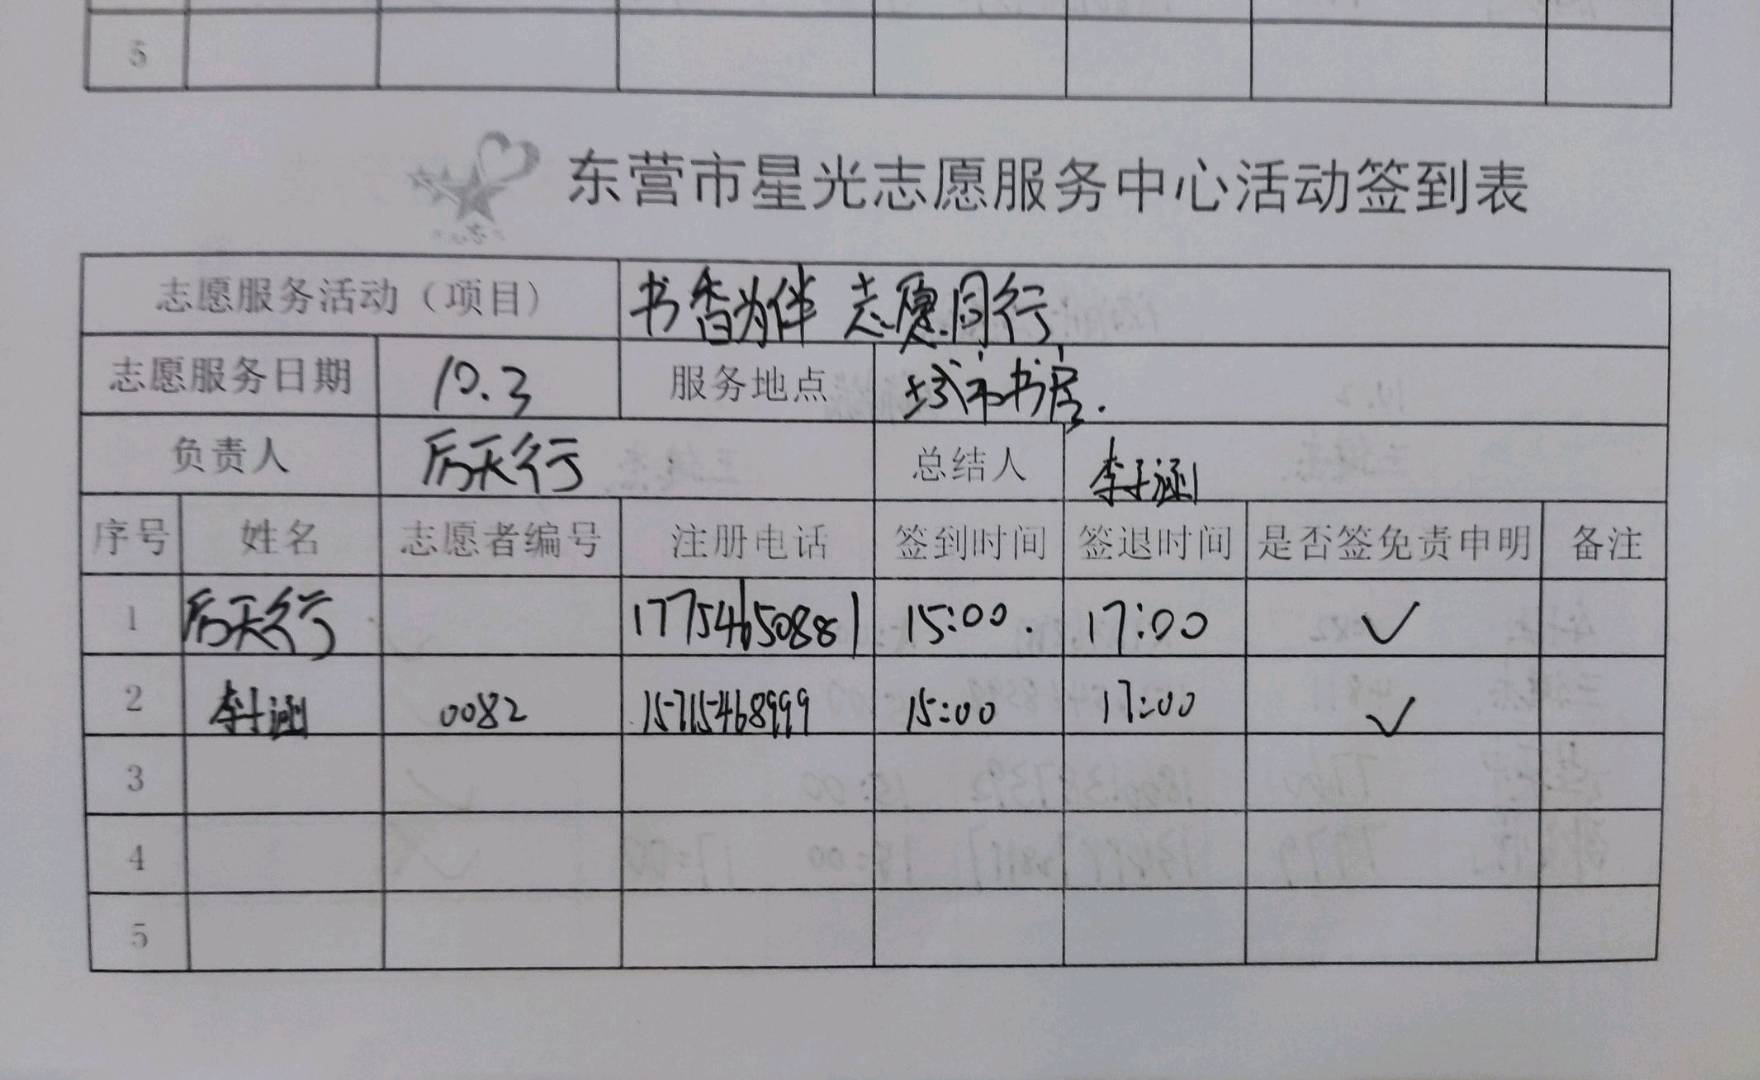 5
东营市星光志愿服务中心活动签到表
志愿服务活动（项目） 书香为伴 志愿同行
志愿服务日期 10.3 服务地点 城市书房.
负责人 厉天行 总结人 李子涵
序号 姓名 志愿者编号 注册电话 签到时间 签退时间 是否签免责申明 备注
1 厉天行 17754650881 15:00. 17:00 ✓
2 李子涵 0082 15715468999 15:00 17:00 ✓
3
4
5